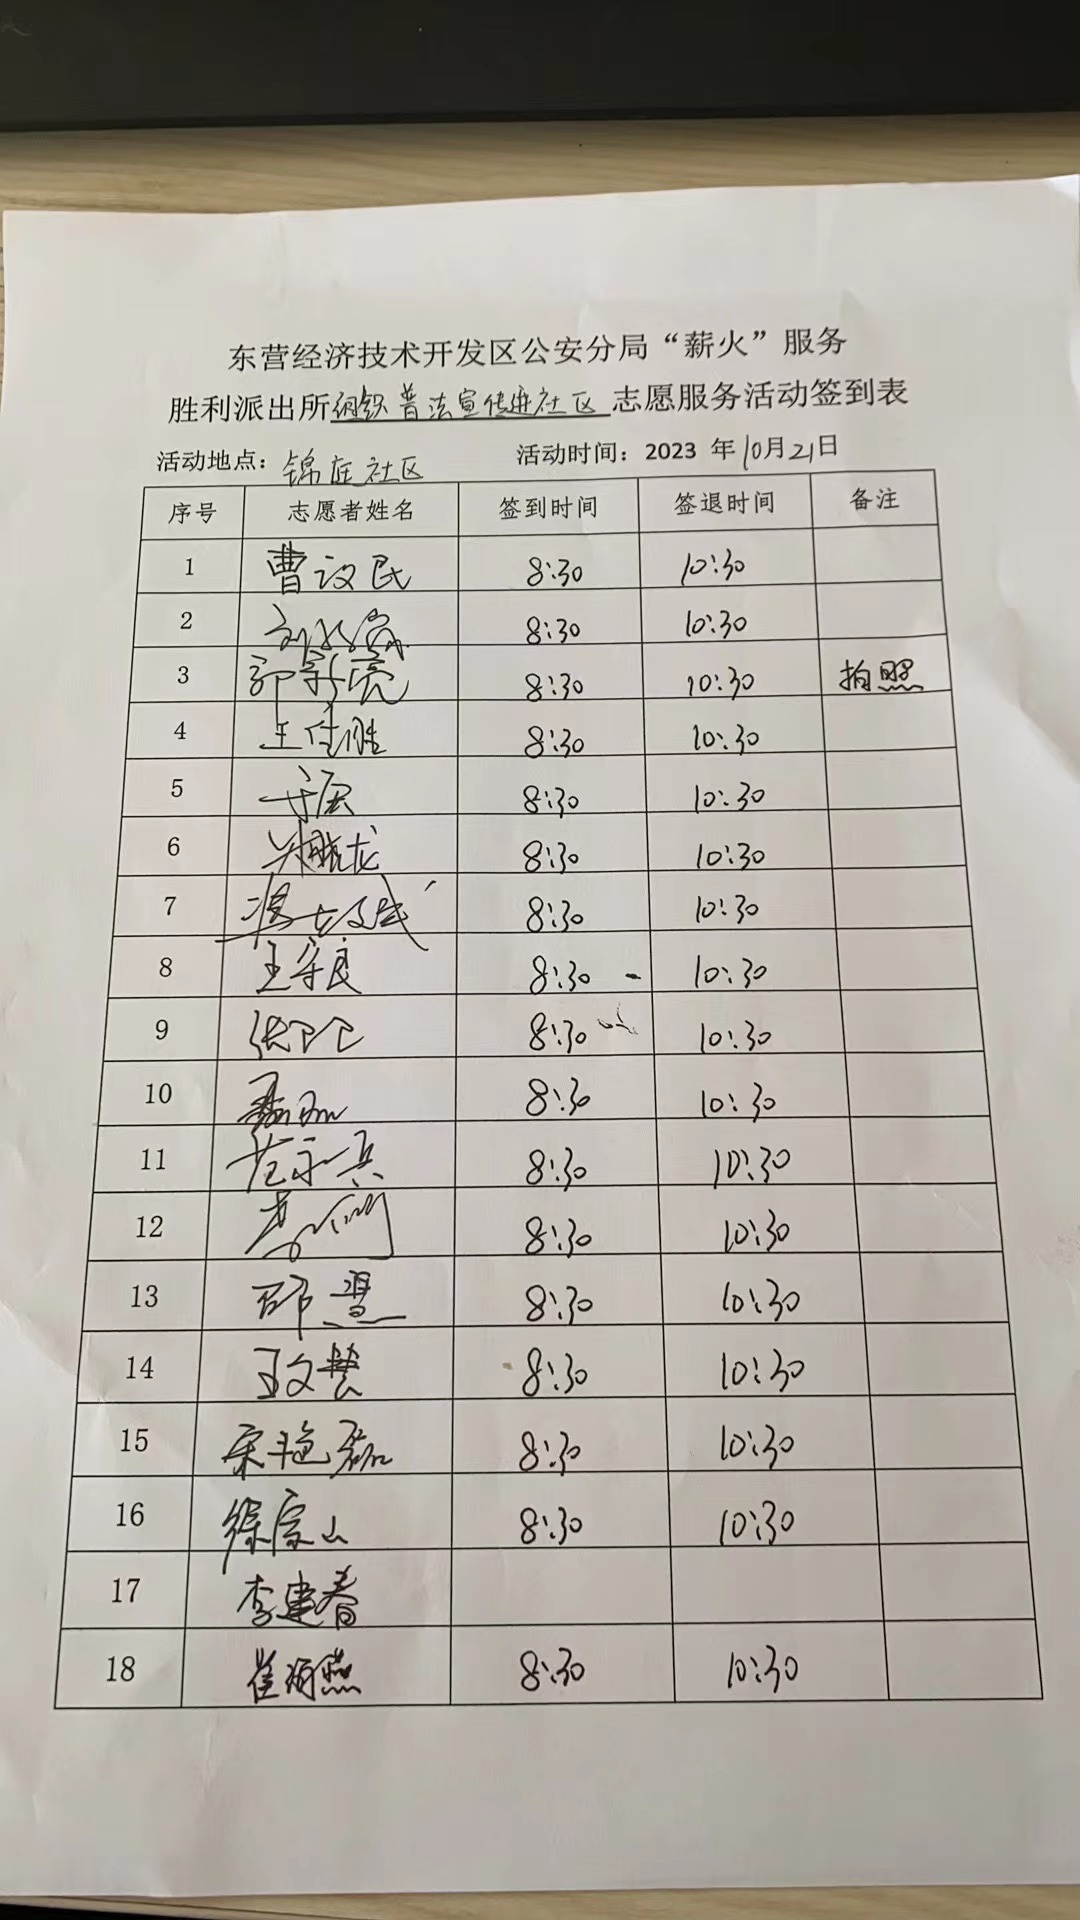 东营经济技术开发区公安分局“薪火”服务
胜利派出所 普法宣传进社区 志愿服务活动签到表
活动地点：锦庭社区 活动时间：2023 年10月21日
序号 志愿者姓名 签到时间 签退时间 备注
1 曹议民 8:30 10:30
2 8:30 10:30
3 郭新亮 8:30 10:30 拍照
4 王付胜 8:30 10:30
5 8:30 10:30
6 8:30 10:30
7 8:30 10:30
8 王守良 8:30 10:30
9 8:30 10:30
10 8:30 10:30
11 8:30 10:30
12 8:30 10:30
13 8:30 10:30
14 王文慧 8:30 10:30
15 宋艳磊 8:30 10:30
16 徐宗山 8:30 10:30
17 李建春
18 8:30 10:30